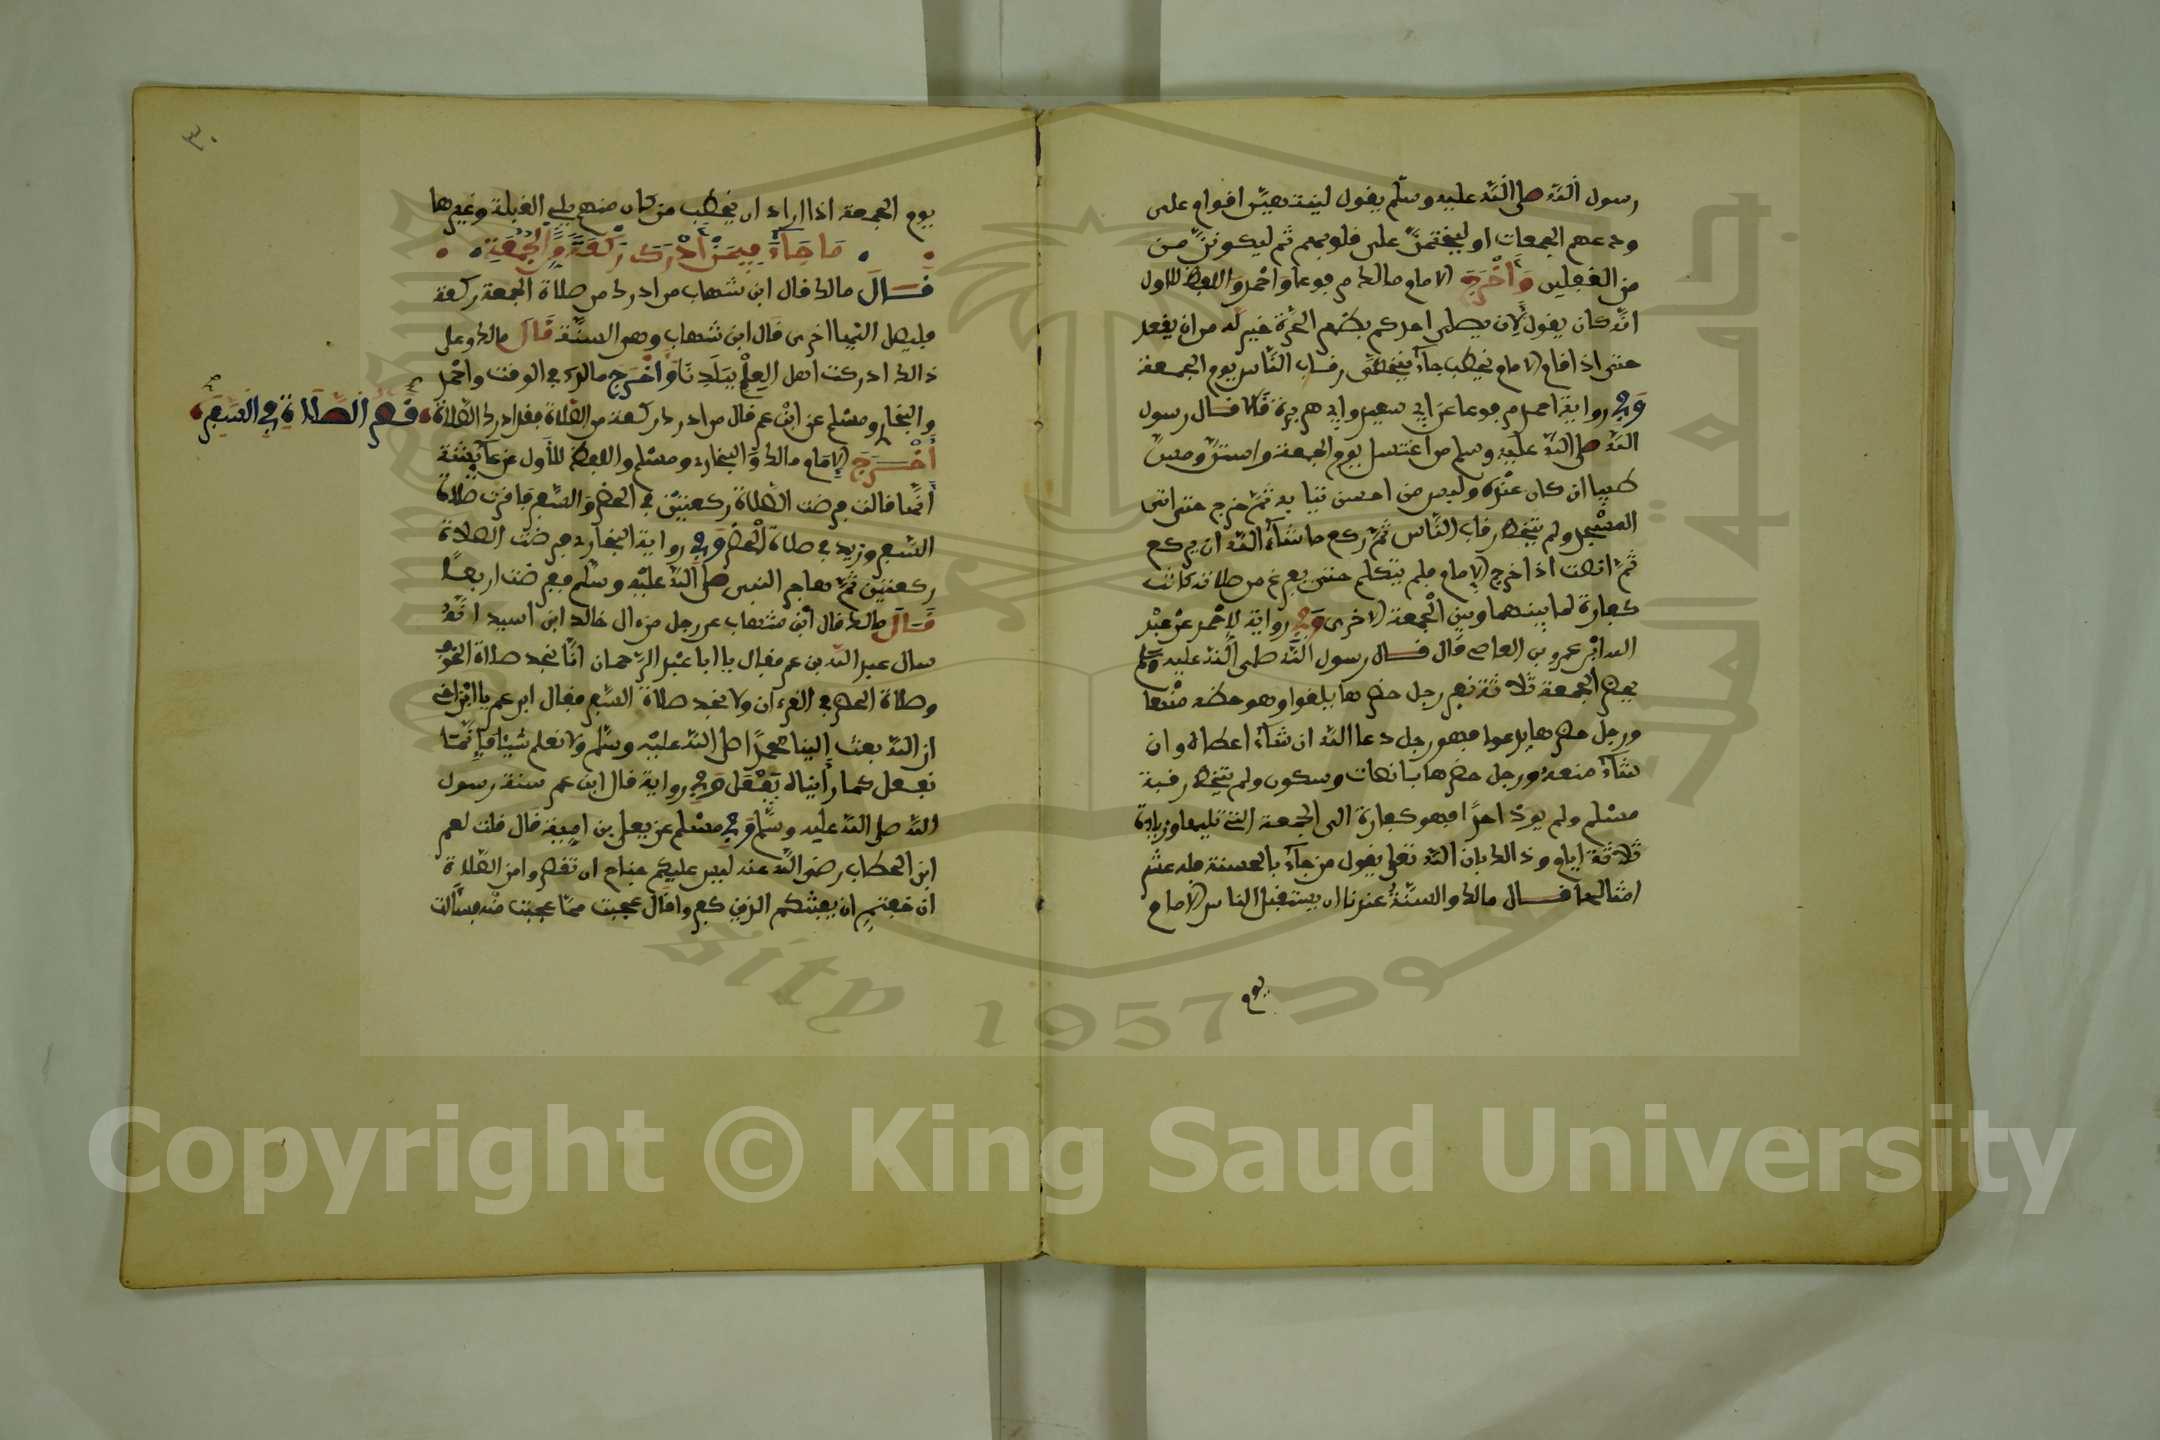 رسول الله صلى الله عليه وسلم يقول لينتهين اقوام على
ودعهم الجمعات او ليختمن على قلوبهم ثم ليكونن من
من الغفلين وأخرج الامام مالك مرفوعا واحمد واللفظ للاول
انه كان يقول لأن يصلي احدكم بظهر الحرة خير له من ان يقعد
حتى اذا قام الامام يخطب جاء يتخطى رقاب الناس يوم الجمعة
وفي رواية احمد مرفوعا عن ابي سعيد وابي هريرة قالا قال رسول
الله صلى الله عليه وسلم من اغتسل يوم الجمعة واستن ومس
طيبا ان كان عنده ولبس من احسن ثيابه ثم خرج حتى اتى
المسجد ولم يتخط رقاب الناس ثم ركع ما شاء الله ان يركع
ثم انصت اذا خرج الإمام فلم يتكلم حتى يفرغ من صلاته كانت
كفارة لما بينها وبين الجمعة الاخرى وفي رواية لاحمد عن عبد
الله ابن عمرو بن العاصي قال قال رسول الله صلى الله عليه وسلم
يحضر الجمعة ثلاثة نفر رجل حضرها بلغوا وهو حظه منها
ورجل حضرها بدعوا فهو رجل دعا الله ان شاء اعطاه وان
شاء منعه ورجل حضرها بانصات وسكون ولم يتخط رقبة
مسلم ولم يوذ احدا فهو كفارة الى الجمعة التي تليها وزيادة
ثلاثة ايام وذالك بان الله تعلى يقول من جاء بالحسنة فله عشر
امثالها قال مالك والسنة عندنا ان يستقبل الناس الامام
يوم
٣٠
يوم الجمعة اذا اراد ان يخطب من كان منهم يلي القبلة وغيرها
ما جاء فيمن أدرك ركعة من الجمعة
قال مالك قال ابن شهاب من ادرك من صلاة الجمعة ركعة
فليصل اليها اخرى قال ابن شهاب وهو السنة قال مالك وعلى
ذالك ادركت اهل العلم ببلدنا وأخرج مالك في الوقت واحمد
والبخاري ومسلم عن ابن عمر قال من ادرك ركعة من الصلاة فقد ادرك الصلاة
قصر الصلاة في السفر
أخرج الإمام مالك والبخاري ومسلم واللفظ للأول عن عائشة
أنها قالت فرضت الصلاة ركعتين في الحضر والسفر فاقرت صلاة
السفر وزيد في صلاة الحضر وفي رواية البخاري فرضت الصلاة
ركعتين ثم هاجر النبي صلى الله عليه وسلم ففرضت اربعا
قال مالك قال ابن شهاب عن رجل من ءال خالد ابن اسيد انه
سال عبد الله بن عمر فقال يا ابا عبد الرحمان انا نجد صلاة الخوف
وصلاة الحضر في القرءان ولا نجد صلاة السفر فقال ابن عمر يا ابن اخي
ان الله بعث إلينا محمدا صلى الله عليه وسلم ولا نعلم شيئا فإنما
نفعل كما رأيناه يفعل وفي رواية قال ابن عمر سنة رسول
الله صلى الله عليه وسلم وفي مسلم عن يعلى بن امية قال قلت لعمر
ابن الخطاب رضي الله عنه ليس عليكم جناح ان تقصروا من الصلاة
ان خفتم ان يفتنكم الذين كفروا قال عجبت مما عجبت منه فسألت